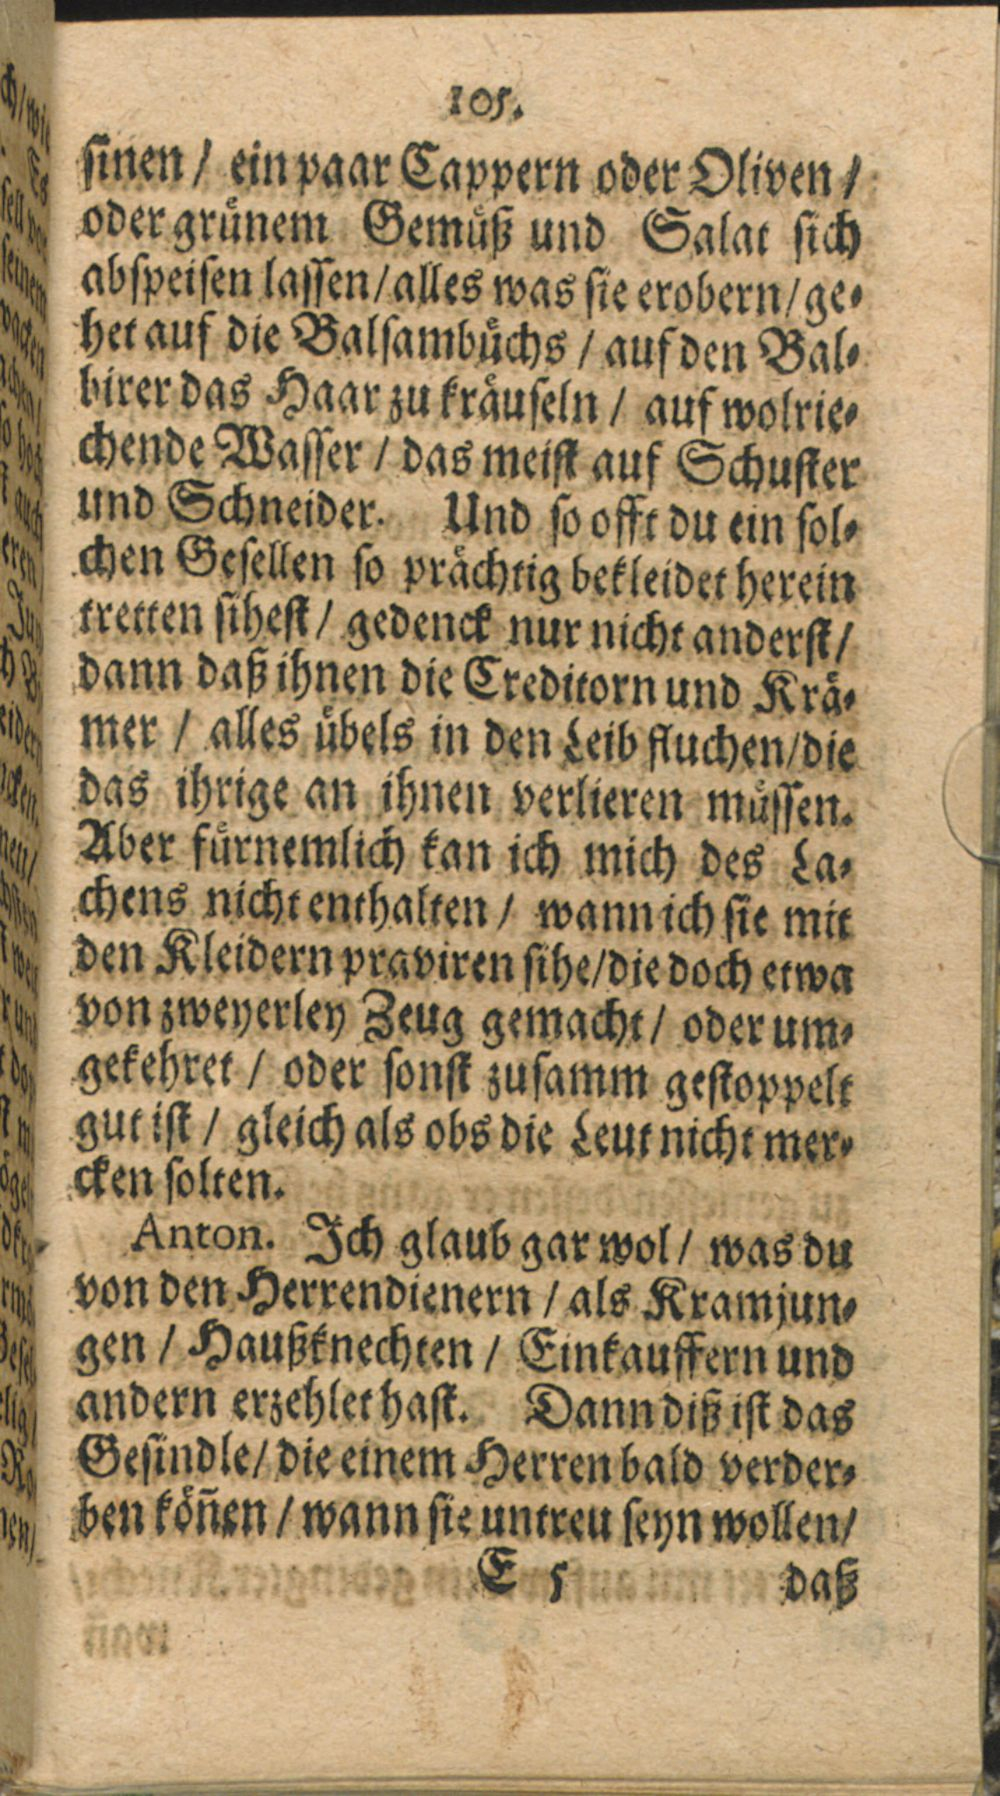 105.
sinen / ein paar Cappern oder Oliven /
oder grünem Gemüß und Salat sich
abspeisen lassen / alles was sie erobern / ge-
het auf die Balsambüchs / auf den Bal-
birer das Haar zu kräuseln / auf wolrie-
chende Wasser / das meist auf Schuster
und Schneider. Und so offt du ein sol-
chen Gesellen so prächtig bekleidet herein
tretten sihest / gedenck nur nicht anderst /
dann daß ihnen die Creditorn und Krä-
mer / alles übels in den Leib fluchen / die
das ihrige an ihnen verlieren müssen.
Aber fürnemlich kan ich mich des La-
chens nicht enthalten / wann ich sie mit
den Kleidern praviren sihe / die doch etwa
von zweyerley Zeug gemacht / oder um-
gekehret / oder sonst zusamm gestoppelt
gut ist / gleich als obs die Leut nicht mer-
cken solten.
Anton. Ich glaub gar wol / was du
von den Herrendienern / als Kramjun-
gen / Haußknechten / Einkauffern und
andern erzehlet hast. Dann diß ist das
Gesindle / die einem Herren bald verder-
ben köñen / wann sie untreu seyn wollen /
E 5 daß